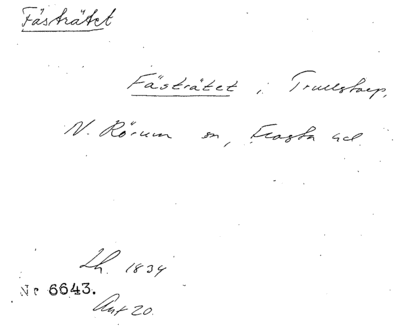 Fästrätet
Fästrätet i Truelstorp,
N. Rörum sn, Frosta hd.
Lh. 1834
No 6643.
Akt 20.